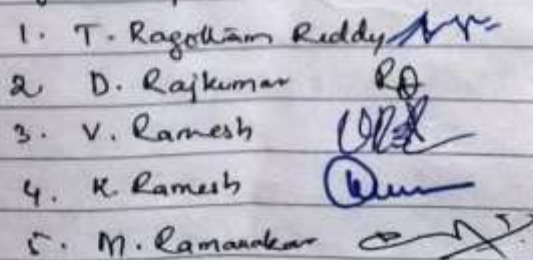 1. T. Ragotham Reddy
2 D. Rajkumar RD
3. V. Ramesh
4. K. Ramesh
5. M. Ramanakar